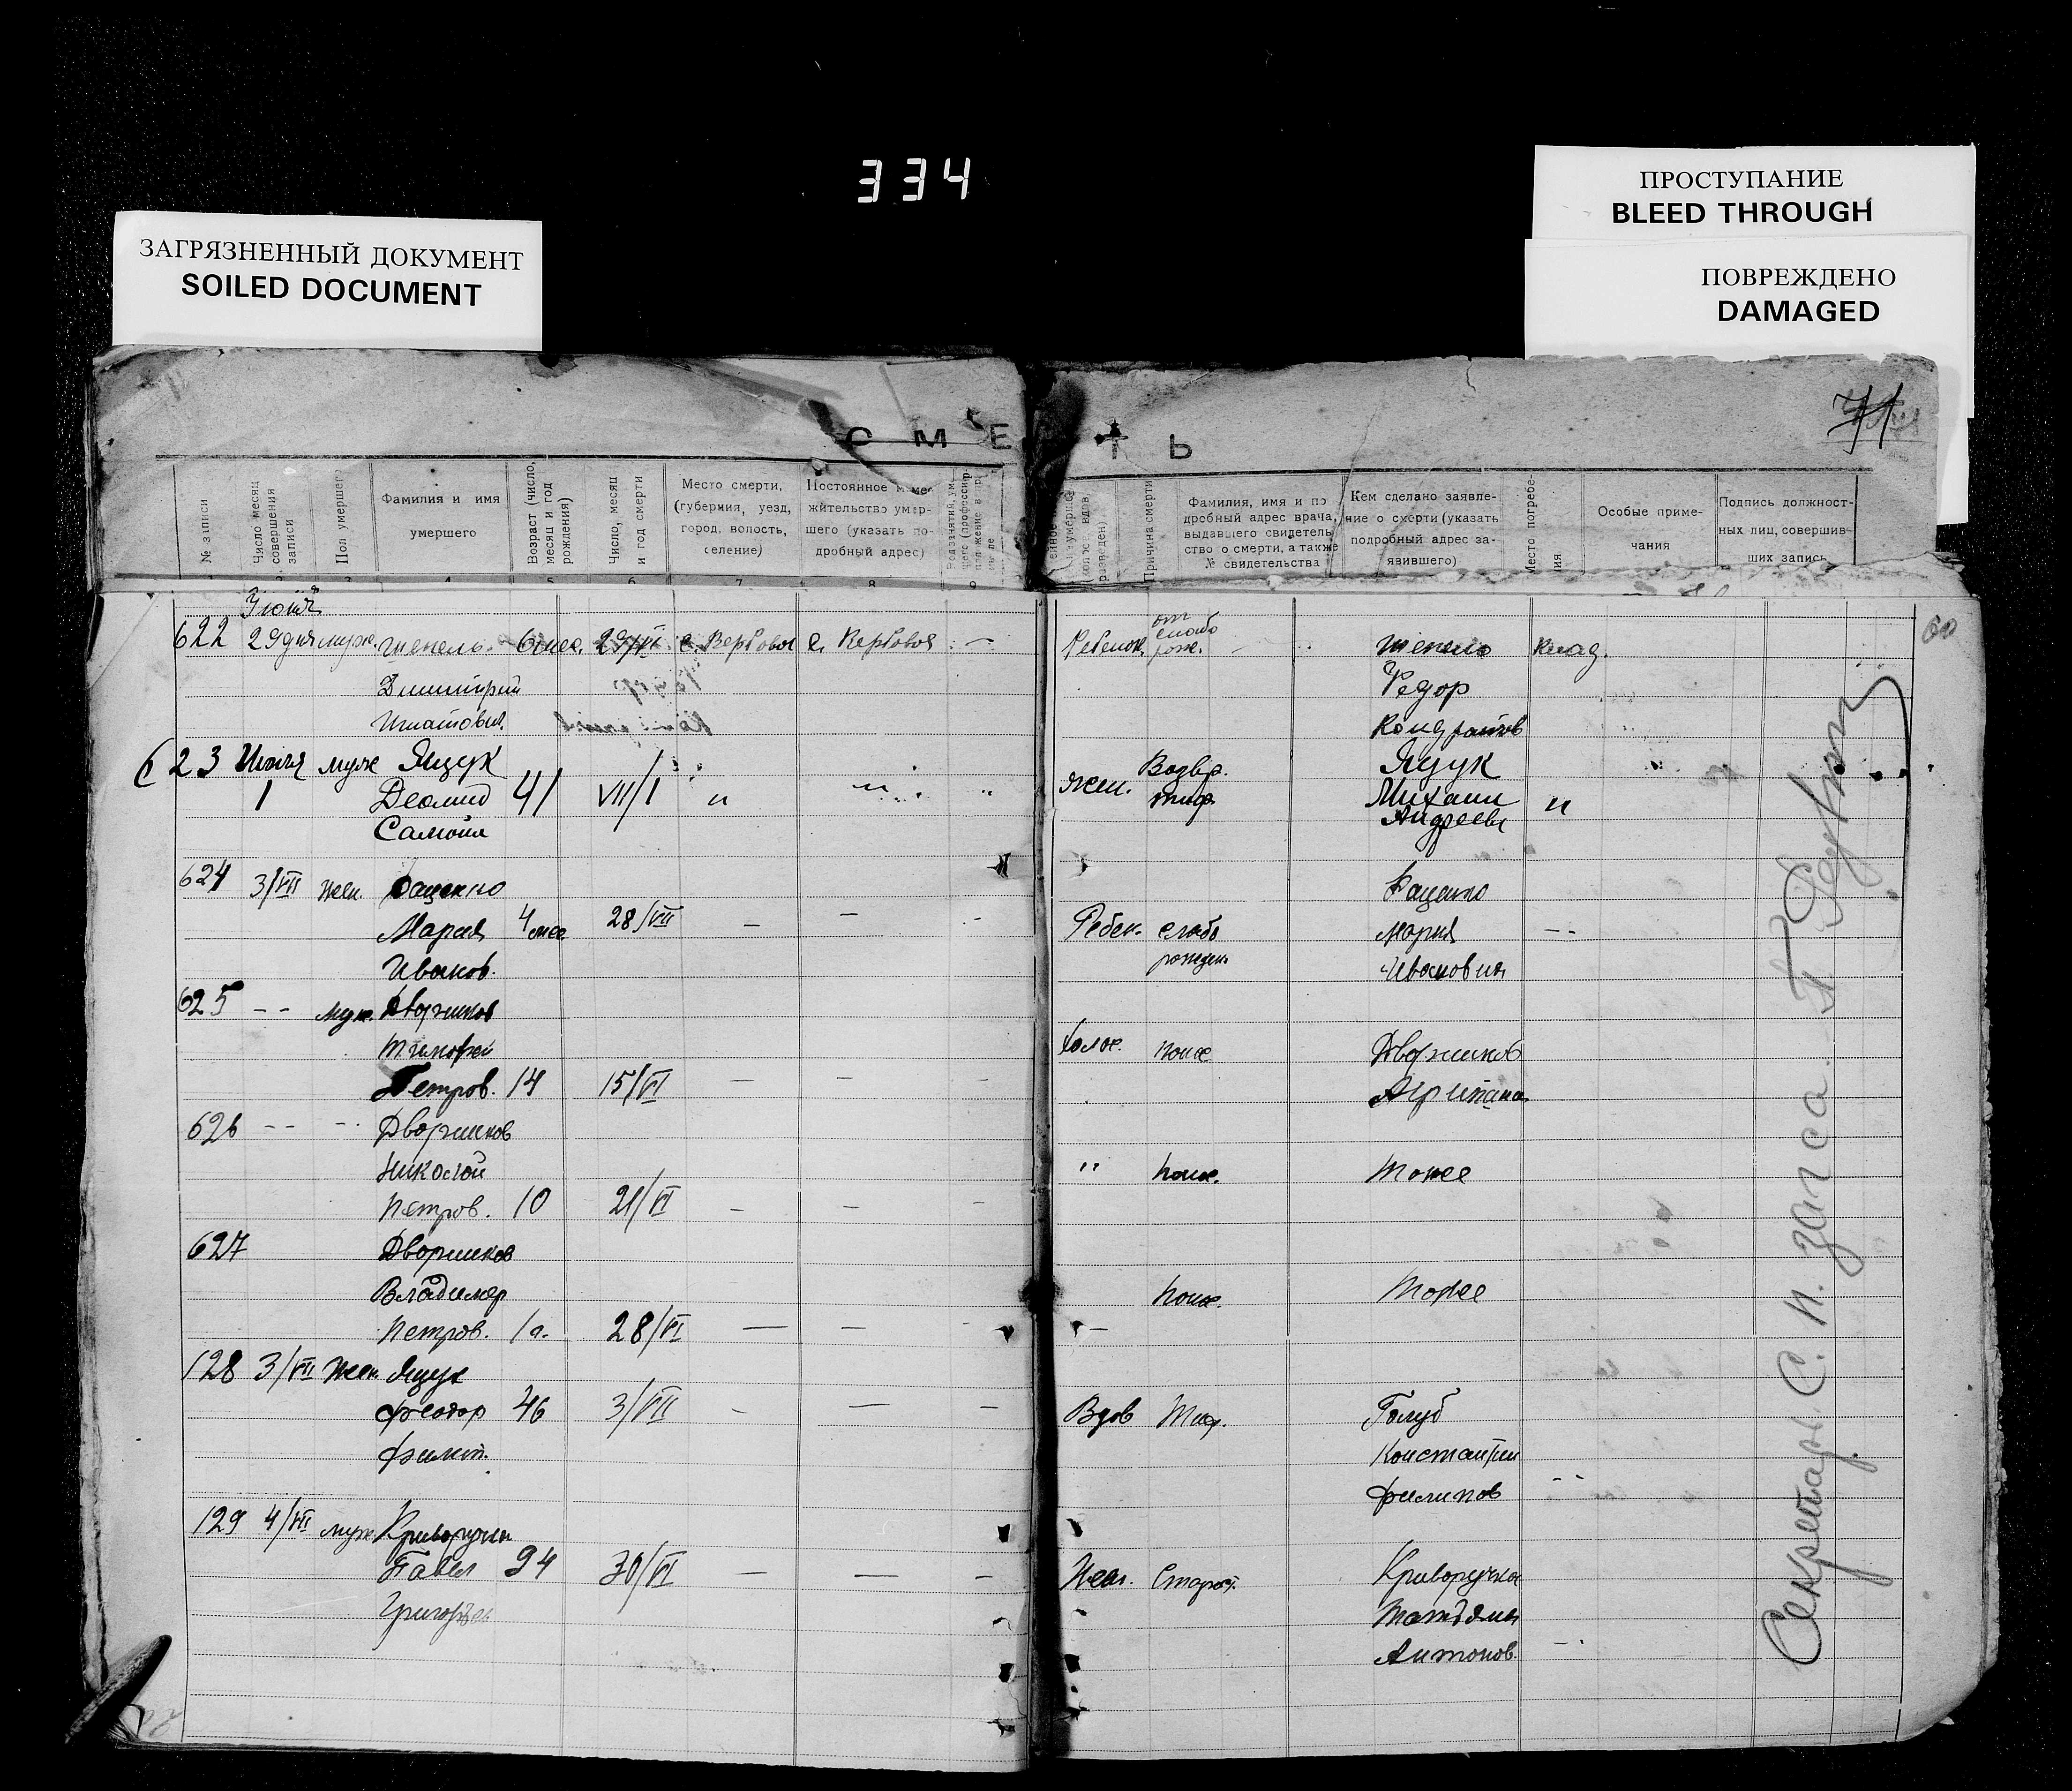 334
ЗАГРЯЗНЕННЫЙ ДОКУМЕНТ
SOILED DOCUMENT
ПРОСТУПАНИЕ
BLEED THROUGH
ПОВРЕЖДЕНО
DAMAGED
71
СМЕ ТЬ
№ записи
Число месяц совершения записи
Пол умершего
Фамилия и имя умершего
Возраст (число, месяц и год рождения)
Число, месяц и год смерти
Место смерти, (губерния, уезд, город, волость, селение)
Постоянное жительство умершего (указать подробный адрес)
Причина смерти
Фамилия, имя и подробный адрес врача, выдавшего свидетельство о смерти, а также № свидетельства
Кем сделано заявление о смерти (указать подробный адрес заявившего)
Место погребения
Особые примечания
Подпись должностных лиц, совершивших запись
2 3 4 5 6 7 8 9
60
622 29 дня муж. 6 мес. 29/VI с. Вербовое с. Вербовоя — Ребенок от слабо рож. Клад.
Дмитрий Федор
Игнатович Кондратов
623 Июля муж Ящук Возвр. Ящук
1 41 VII/1 " " " жен. тиф. Михаил "
Самойл Андреев
624 3/VII жен. Даценко
Мария 4 мес 28/VII — — - Ребен. слабо Мария - -
Иванов. рожден Ивановна
625 - - муж. Дворников
Тимофей холос. понос Дворников
Петров. 14 15/VI — — - Агрипана
626 - - - - Дворников
Николай " понос. тоже
Петров. 10 21/VI — — -
627 Дворников
Владимер понос. тоже
Петров. 1 г. 28/VI — — - —
128 3/VII жен. Ящук
Феодор 46 3/VII - — — Вдов Тиф. Голуб
Филип. Константин
Филипов - -
129 4/VII муж Криворучка
Павел 94 30/VI — — - Жен. Старост. Криворучка
Григорьев Татьяна
Антонов. - -
Секретарь С. П. загса